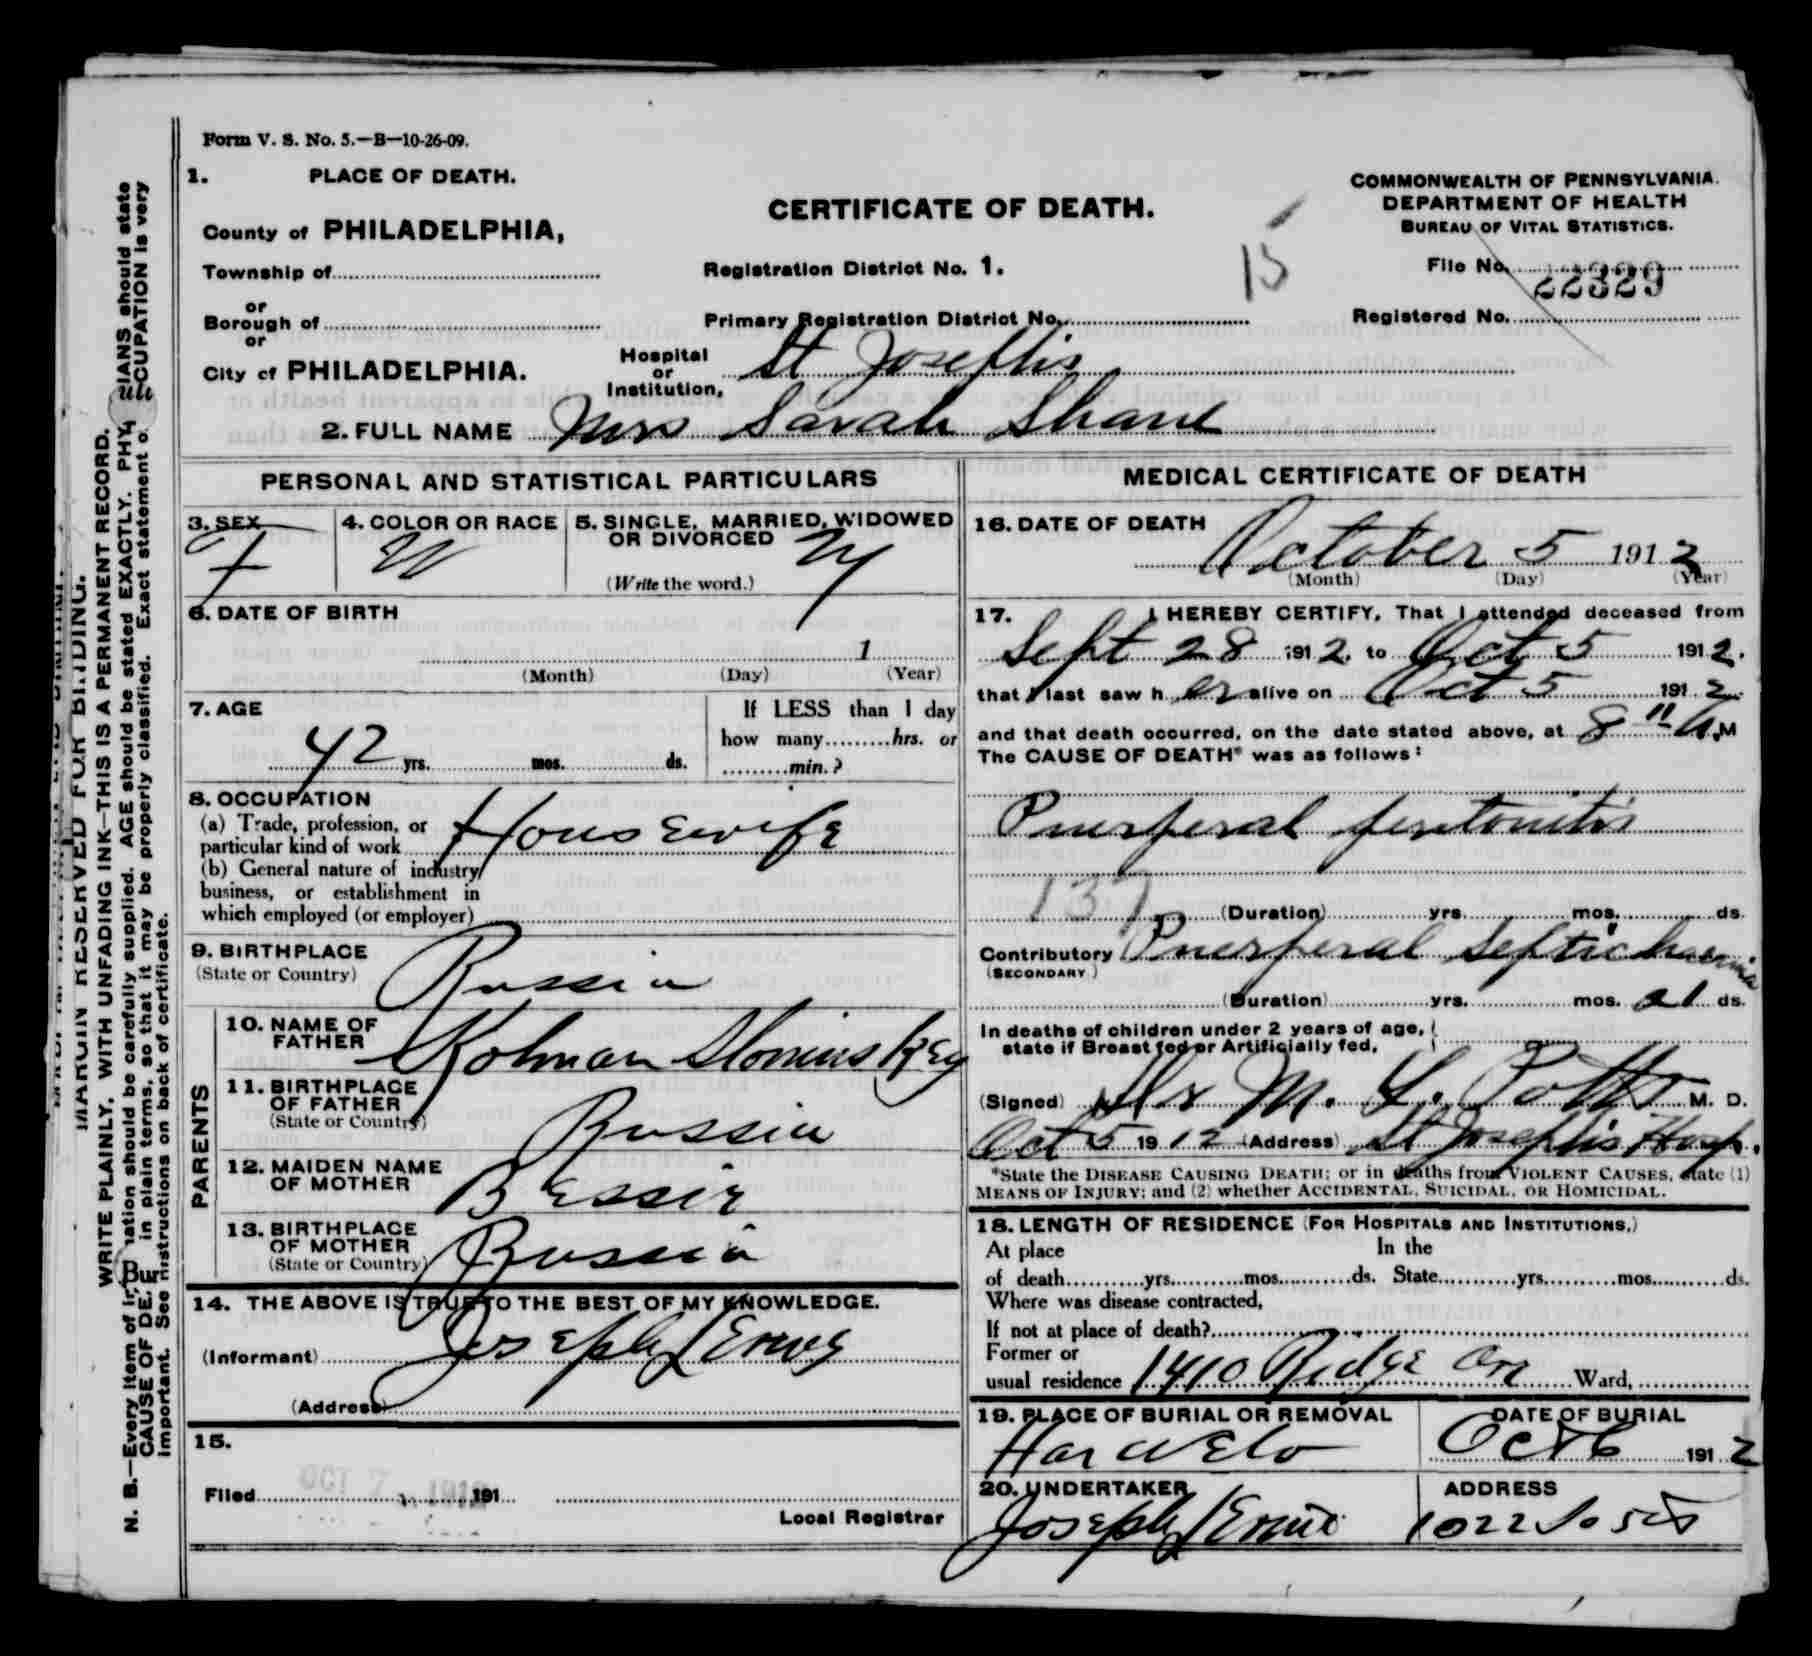 Form V. S. No. 5.—B—10-26-09.
1. PLACE OF DEATH.
County of PHILADELPHIA,
Township of
or
Borough of
or
City of PHILADELPHIA.
CERTIFICATE OF DEATH.
Registration District No. 1.
Primary Registration District No.
15
COMMONWEALTH OF PENNSYLVANIA.
DEPARTMENT OF HEALTH
BUREAU OF VITAL STATISTICS.
File No. 22329
Registered No.
Hospital or Institution, St Josephs
2. FULL NAME Mrs Sarah Shane
PERSONAL AND STATISTICAL PARTICULARS
3. SEX F
4. COLOR OR RACE W
5. SINGLE, MARRIED, WIDOWED OR DIVORCED M
(Write the word.)
6. DATE OF BIRTH
1
(Month) (Day) (Year)
7. AGE
42 yrs. mos. ds.
If LESS than 1 day
how many hrs. or
min.?
8. OCCUPATION
(a) Trade, profession, or
particular kind of work Housewife
(b) General nature of industry
business, or establishment in
which employed (or employer)
9. BIRTHPLACE
(State or Country) Russia
PARENTS
10. NAME OF FATHER Kolman Slonimskey
11. BIRTHPLACE OF FATHER
(State or Country) Russia
12. MAIDEN NAME OF MOTHER Bessie
13. BIRTHPLACE OF MOTHER
(State or Country) Russia
14. THE ABOVE IS TRUE TO THE BEST OF MY KNOWLEDGE.
(Informant) Joseph Levine
(Address)
15.
Filed OCT 7 1912 191
Local Registrar
MEDICAL CERTIFICATE OF DEATH
16. DATE OF DEATH
October 5 1912
(Month) (Day) (Year)
17. I HEREBY CERTIFY, That I attended deceased from
Sept 28 1912, to Oct 5 1912.
that I last saw her alive on Oct 5 1912.
and that death occurred, on the date stated above, at 8 11 A.M
The CAUSE OF DEATH* was as follows:
Puerperal peritonitis
137 (Duration) yrs. mos. ds.
Contributory Puerperal Septichaemia
(SECONDARY)
(Duration) yrs. mos. 21 ds.
In deaths of children under 2 years of age,
state if Breast fed or Artificially fed.
(Signed) Dr M. L. Potts M. D.
Oct 5 1912 (Address) St Josephs Hosp.
*State the DISEASE CAUSING DEATH; or in deaths from VIOLENT CAUSES, state (1)
MEANS OF INJURY; and (2) whether ACCIDENTAL, SUICIDAL, OR HOMICIDAL.
18. LENGTH OF RESIDENCE (FOR HOSPITALS AND INSTITUTIONS.)
At place In the
of death yrs. mos. ds. State yrs. mos. ds.
Where was disease contracted,
If not at place of death?
Former or
usual residence 1410 Ridge Ave Ward,
19. PLACE OF BURIAL OR REMOVAL
Har Nebo
DATE OF BURIAL
Oct 6 1912
20. UNDERTAKER
Joseph Levine
ADDRESS
1022 So 5 St
MARGIN RESERVED FOR BINDING.
WRITE PLAINLY, WITH UNFADING INK—THIS IS A PERMANENT RECORD.
N. B.—Every item of information should be carefully supplied. AGE should be stated EXACTLY. PHYSICIANS should state
CAUSE OF DEATH in plain terms, so that it may be properly classified. Exact statement of OCCUPATION is very
important. See instructions on back of certificate.